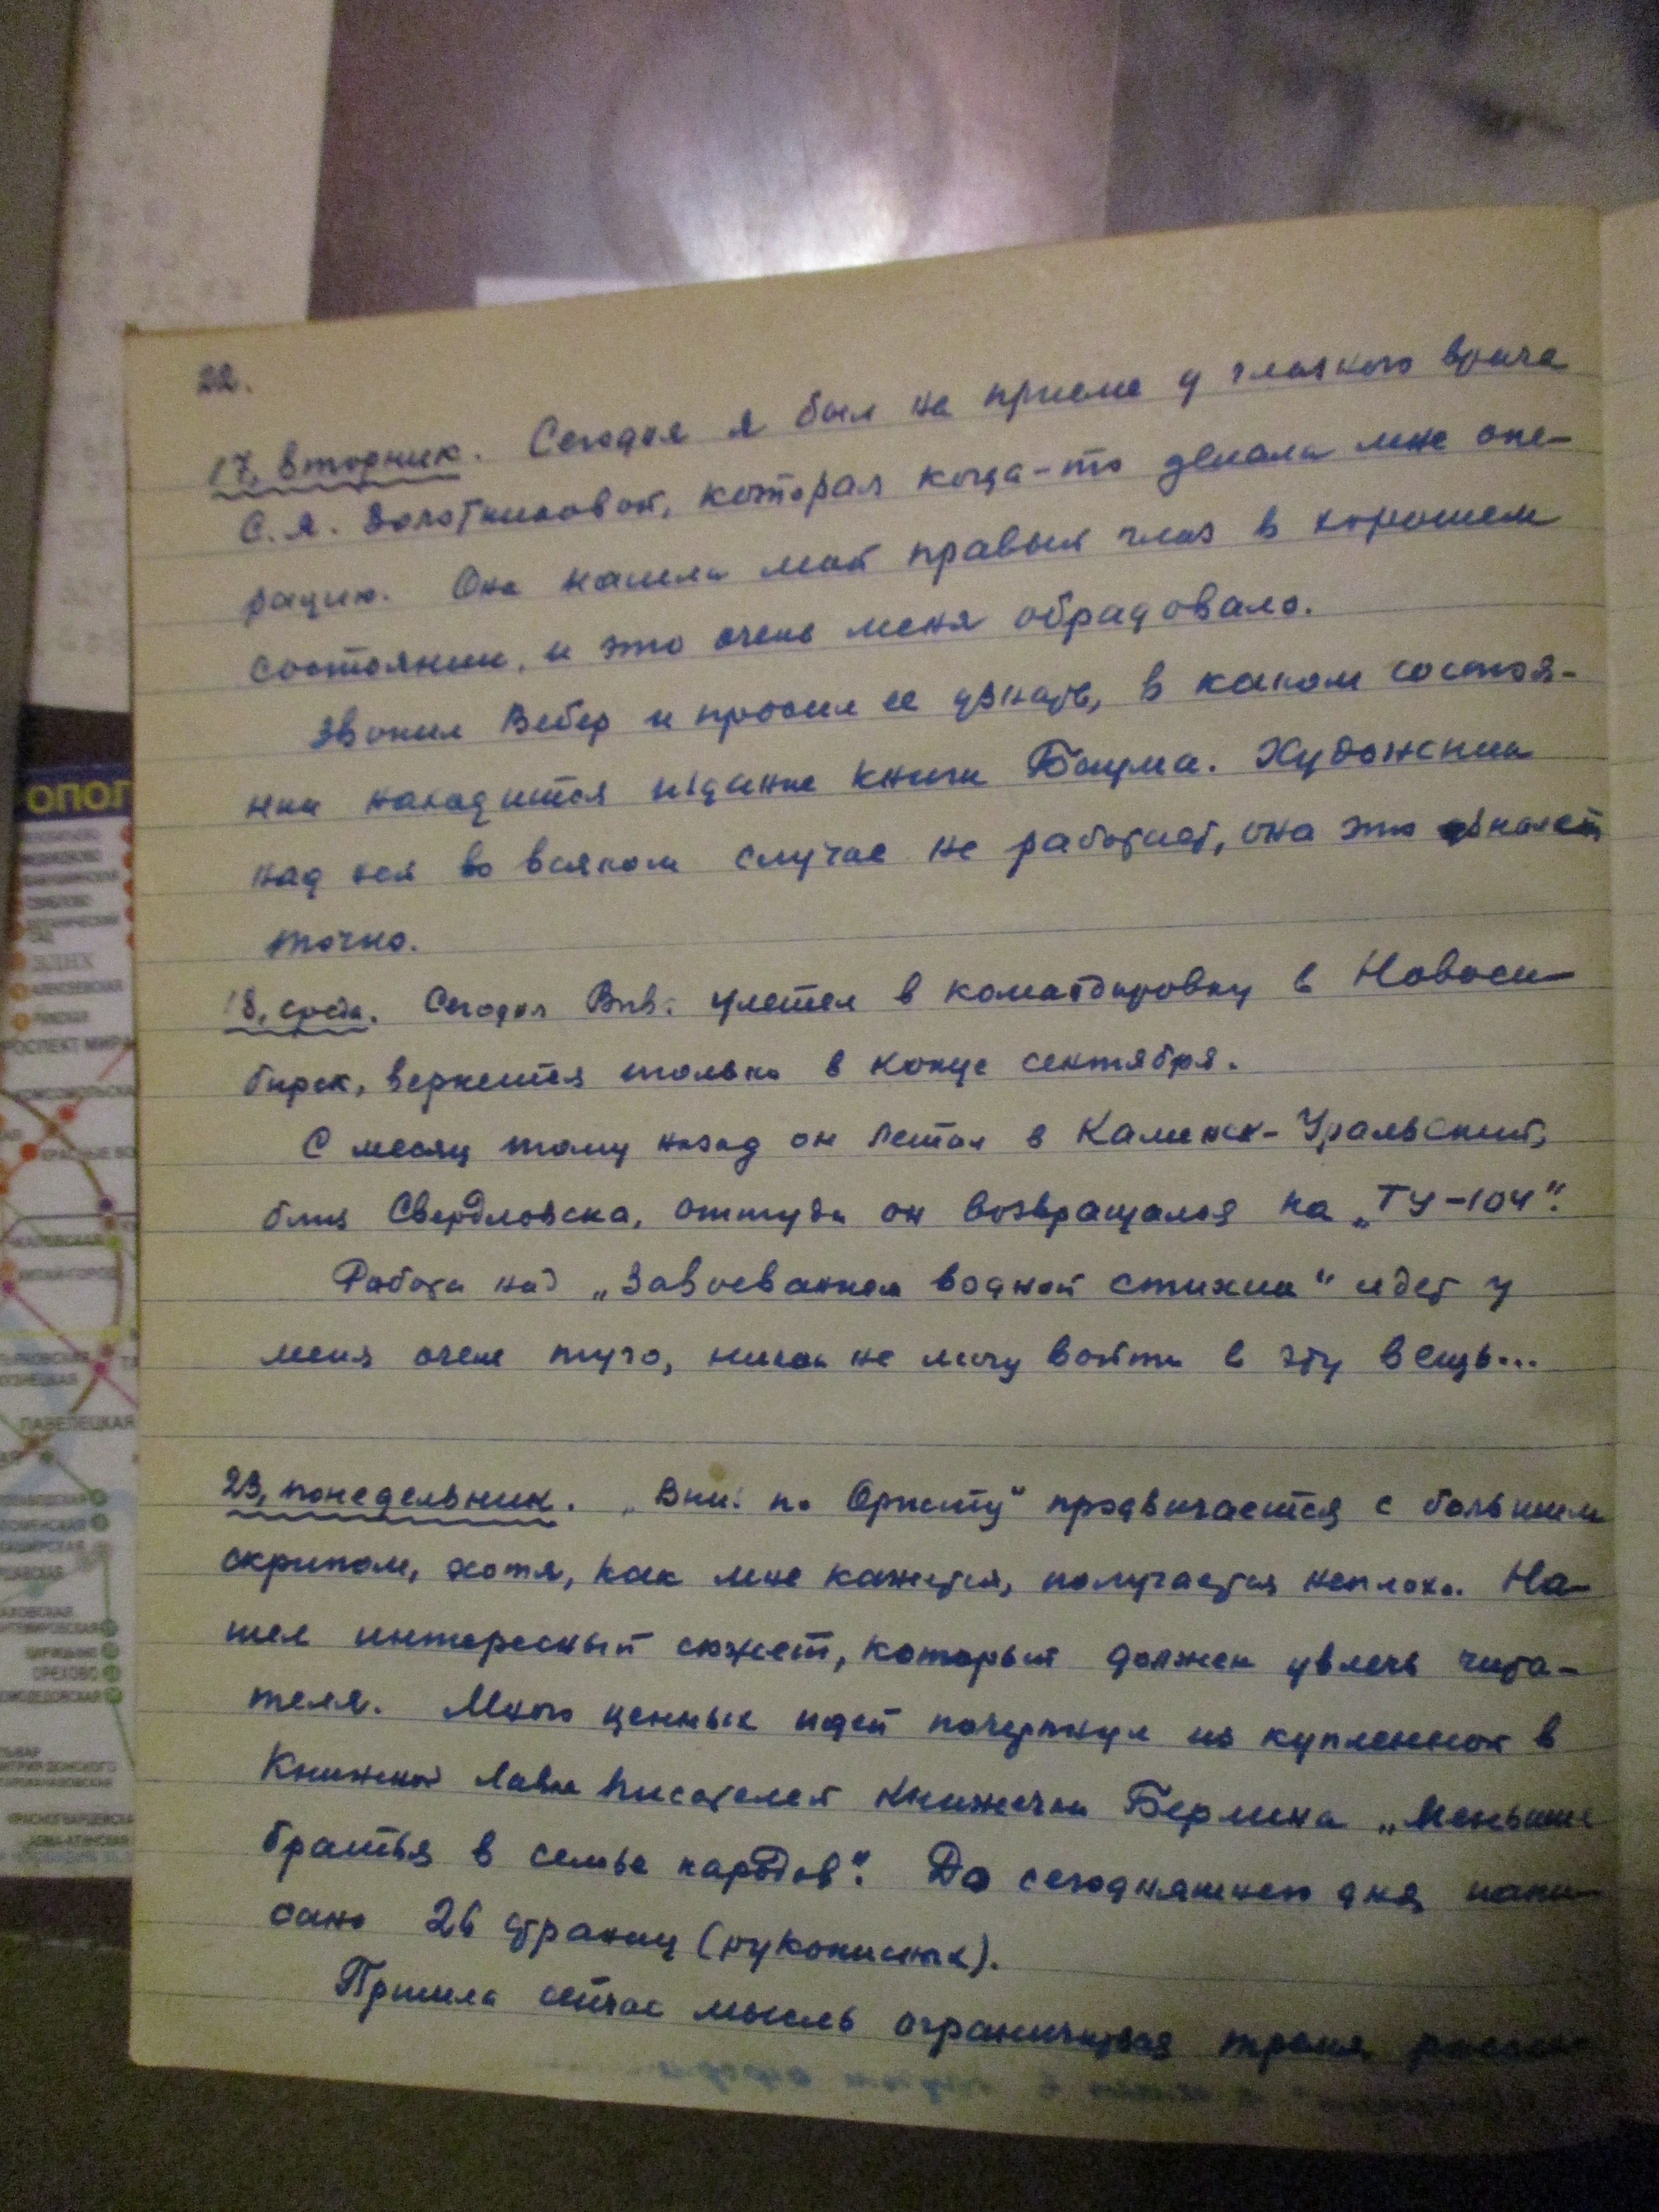 22.
17, вторник. Сегодня я был на приеме у глазного врача
С.Я. Золотниковой, которая когда-то делала мне опе-
рацию. Она нашла мой правый глаз в хорошем
состоянии, и это очень меня обрадовало.
Звонил Вебер и просил ее узнать, в каком состоя-
нии находится издание книги Баума. Художник
над ней во всяком случае не работает, она это знает
точно.
18, среда. Сегодня улетел в командировку в Новоси-
бирск, вернется только в конце сентября.
С месяц тому назад он летал в Каменск-Уральский,
близ Свердловска, оттуда он возвращался на „ТУ-104“.
Работа над „Завоеванием водной стихии“ идет у
меня очень туго, никак не могу войти в эту вещь...
23, понедельник. по продвигается с большим
скрипом, хотя, как мне кажется, получается неплохо. На-
шел интересный сюжет, который должен увлечь чита-
теля. Много ценных идей почерпнул из купленной в
Книжной лавке писателей книжечки Берлина „Меньшие
братья в семье народов“. До сегодняшнего дня напи-
сано 26 страниц (рукописных).
Пришла сейчас мысль
ОПОЛ
ВДНХ
АЛЕКСЕЕВСКАЯ
РИЖСКАЯ
РОСПЕКТ МИРА
КОМСОМОЛЬСКА
КРАСНЫЕ ВО
КИТАЙ-ГОРОД
ПАВЕЛЕЦКАЯ
КАШИРСКАЯ
ЦАРИЦЫНО
ОРЕХОВО
ДОМОДЕДОВСКАЯ
КРАСНОГВАРДЕЙСКА